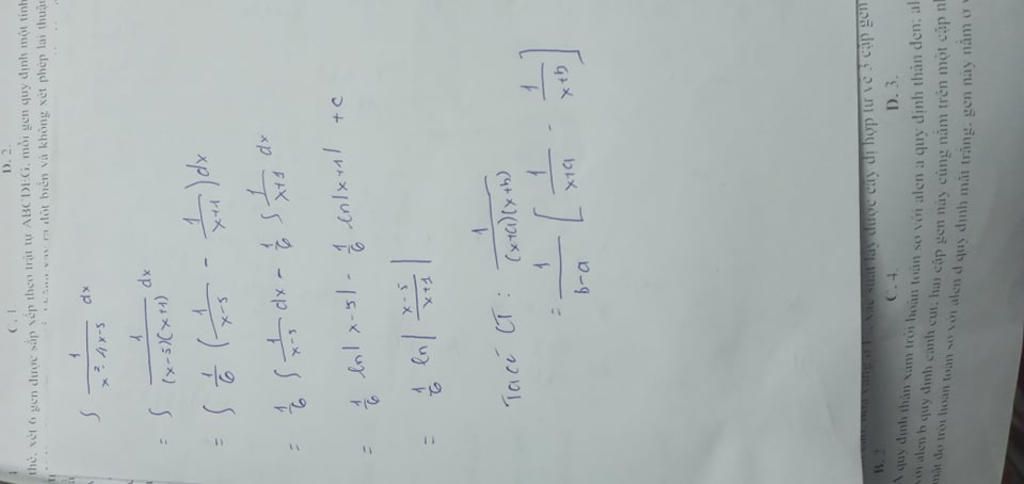 C. 1
D. 2.
thể, xét 6 gen được sắp xếp theo trật tự ABCDEG, mỗi gen quy định một tính
đột biến và không xét phép lai thuận
∫ 1/(x²-4x-5) dx
= ∫ 1/((x-5)(x+1)) dx
= ∫ 1/6 (1/(x-5) - 1/(x+1)) dx
= 1/6 ∫ 1/(x-5) dx - 1/6 ∫ 1/(x+1) dx
= 1/6 ln|x-5| - 1/6 ln|x+1| + C
= 1/6 ln|(x-5)/(x+1)|
Ta có CT: 1/((x+a)(x+b))
= 1/(b-a) [1/(x+a) - 1/(x+b)]
lấy được cây dị hợp tử về 3 cặp gen
B. 2
C. 4.
D. 3.
A quy định thân xám trội hoàn toàn so với alen a quy định thân đen; al
với alen b quy định cánh cụt, hai cặp gen này cùng nằm trên một cặp nh
mắt đỏ trội hoàn toàn so với alen d quy định mắt trắng, gen này nằm ở v